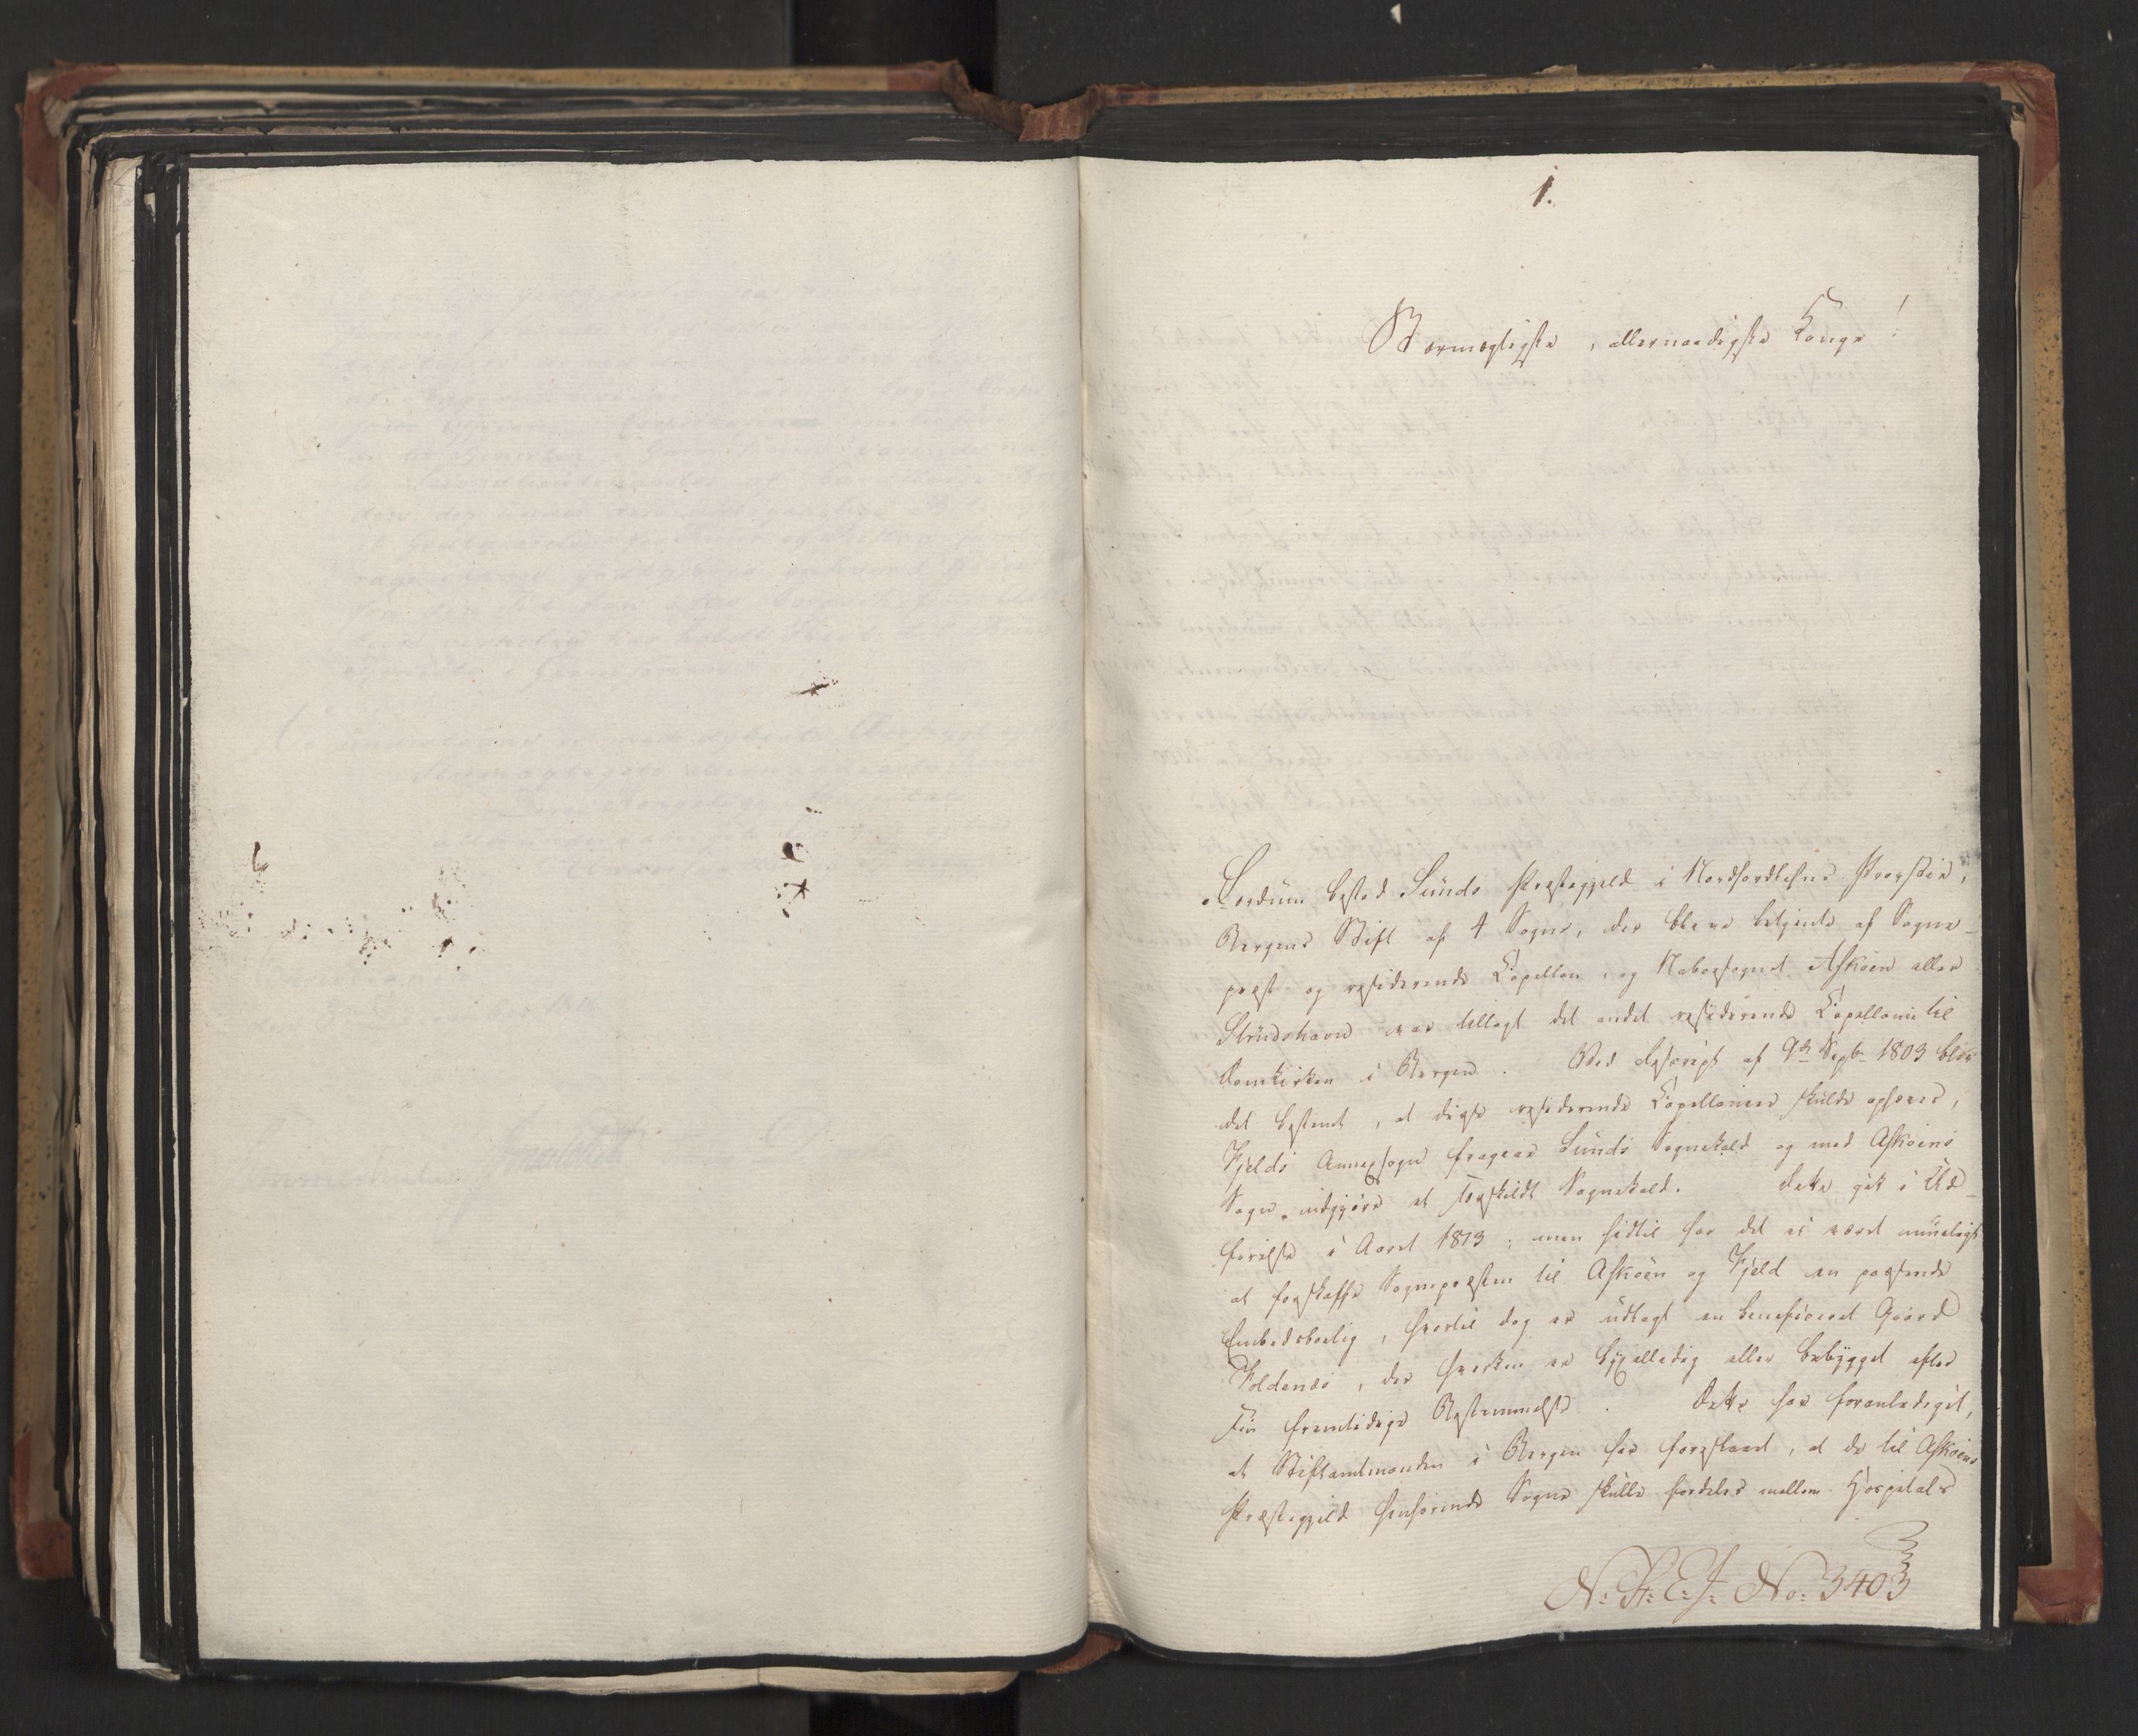 1.
Stormægtigste, allernaadigste Konge!
Fordum bestod Sunds Præstegjeld i Nordhordlehns Provstie,
Bergens Stift af 4 Sogne, der bleve betjente af Sogne-
præst og residerende Capellan, og Nabosognet Askøen eller
Strudshavn var tillagt det andet residerende Capellanie til
Domkirken i Bergen. Ved Rescript af 9de Septr 1803 blev
det bestemt, at disse residerende Capellanier skulde ophæves,
Fjelds Annexsogn fragaae Sunds Sognekald og med Askøens
Sogn udgjøre et særskildt Sognekald. Dette gik i Ud-
førelse i Aaret 1813; men hidtil har det ei været mueligt
at forskaffe Sognepræsten til Askøen og Fjeld en passende
Embedsbolig, hvortil dog er udlagt en beneficeret Gaard
Foldenæs, der hverken er byxelledig eller bebygget efter
sin fremtidige Bestemmelse. Dette har foranlediget,
at Stiftamtmanden i Bergen har foreslaaet, at de til Askøens
Præstegjeld henhørende Sogne skulle fordeles mellem Hospitals
No: 3403